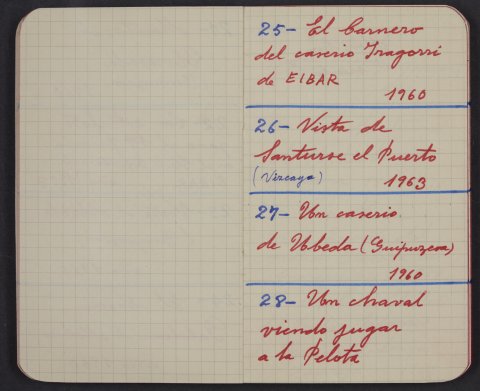 25- El Carnero
del caserio Iragorri
de EIBAR
1960
26- Vista de
Santurse el Puerto
(Vizcaya) 1963
27- Un caserio
de Ubeda (Guipuzcoa)
1960
28- Un chaval
viendo jugar
a la Pelota